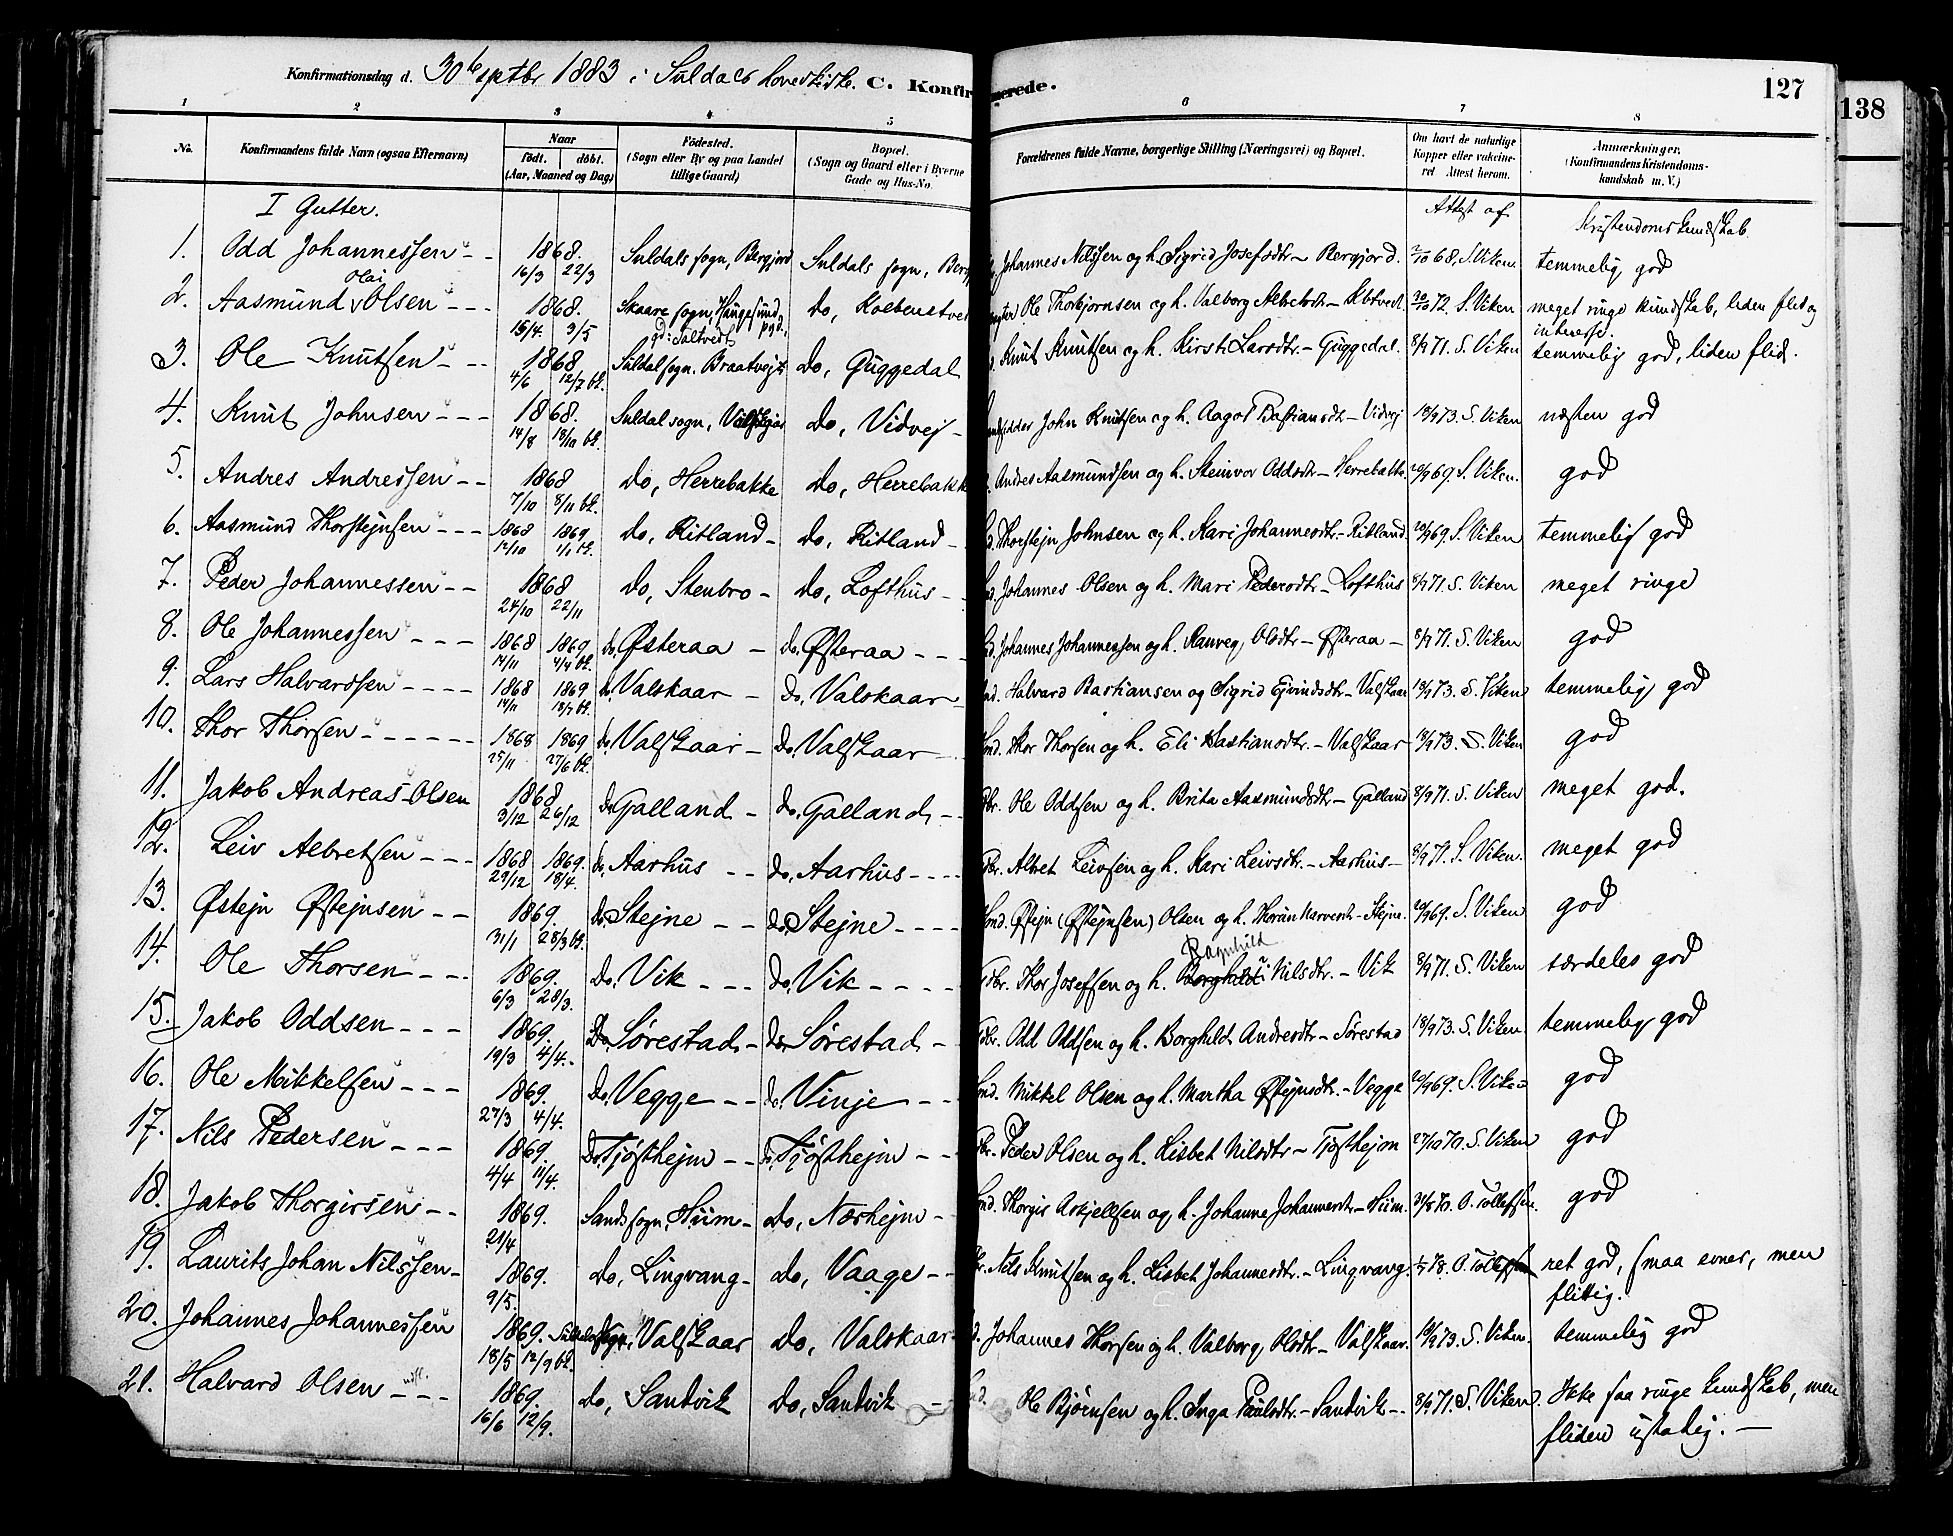 Konfirmationsdag d. 30te septbr 1883 i Suldals hovedkirke. C. Konfirmerede. 127
138
1 2 3 4 5 6 7 8
No. Konfirmandens fulde Navn (ogsaa Efternavn) Naar født. døbt. (Aar, Maaned og Dag) Fødested. (Sogn eller By og paa Landet tillige Gaard) Bopæl. (Sogn og Gaard eller i Byerne Gade og Hus-No. Forældrenes fulde Navne, borgerlige Stilling (Næringsvei) og Bopæl. Om havt de naturlige Kopper eller vakcineret Attest herom. Anmærkninger. (Konfirmandens Kristendomskundskab m. V.)
I Gutter. Attest af Kristendomskundskab
1. Odd Johannessen 1868. 16/3 22/3 Suldals sogn, Bergjord Suldals sogn, Berg Johannes Nilssen og h. Sigrid Josefsdtr – Bergjord. 2/10 68. S. Viken. temmelig god
2. Aasmund Olai Olsen 1868. 15/4. 3/5 Skaare sogn, Haugesund pgd. do, Kolbenstvedt Ole Thorbjørnsen og h. Valborg 20/10 72. S. Viken meget ringe kundskab, liden flid og interesse.
3. Ole Knutsen 1868 4/6 12/7 bk. Suldal sogn. Braatvejt do, Guggedal Knut Knutsen og h. Kirsti Larsdtr. – Guggedal. 8/9 71. S. Viken temmelig god, liden flid.
4. Knut Johnsen 1868. 14/8 18/10 bk. Suldal sogn, do, Vidvej John Knutsen og h. Aagot Bastiansdtr – Vidvej 18/9 73. S. Viken næsten god
5. Andres Andressen 1868 7/10 8/11 bk. do, Herrebakke do, Herrebakke Andres Aasmundsen og h. Steinvor Oddsdtr – Herrebakke. 20/9 69. S. Viken. god
6. Aasmund Thorstejnsen 1868 12/10 1869 1/1 bk. do, Ritland do, Ritland Thorstejn Johnsen og h. Kari Johannesdtr. – Ritland. 20/9 69. S. Viken temmelig god
7. Peder Johannessen 1868 24/10 22/11 do, Stenbro do, Lofthus Johannes Olsen og h. Mari Pedersdtr – Lofthus 8/9 71. S. Viken meget ringe
8. Ole Johannessen 1868 14/11 1869. 4/4 bk. do, Østeraa do. Østeraa Johannes Johannessen og h. Ranveg Olsdtr – Østeraa – 8/9 71. S. Viken god
9. Lars Halvardsen 1868 14/11 1869 18/7 bk. do. Valskaar do. Valskaar Halvard Bastiansen og Sigrid Ejvindsdtr – Valskaar 18/9 73. S. Viken temmelig god
10. Thor Thorsen 1868 25/11 1869 27/6 bk. do. Valskaar do. Valskaar Thor Thorsen og h. Eli Bastiansdtr. – Valskaar 18/9 73. S. Viken god
11. Jakob Andreas Olsen 1868 3/12 26/12 do. Galland do. Galland Ole Oddsen og h. Brita Aasmundsdtr – Galland 8/9 71. S. Viken meget god.
12. Leiv Albretsen 1868 29/12 1869. 18/4. do. Aarhus do. Aarhus Albret Leivsen og h. Kari Leivsdtr. – Aarhus – 8/9 71. S. Viken. meget god
13. Østejn Østejnsen 1869. 31/1 28/3 bk. do. Stejne do. Stejne Østejn (Østejnsen) Olsen og h. – Stejne. 20/9 69. S. Viken god
14. Ole Thorsen 1869. 6/3 28/3. do. Vik do. Vik Thor Josefsen og h. Borghild Ragnhild Nilsdtr. – Vik 8/9 71. S. Viken særdeles god
15. Jakob Oddsen 1869. 19/3 4/4. do. Sørestad do. Sørestad Odd Oddsen og h. Borghild Andresdtr – Sørestad 18/9 73. S. Viken temmelig god
16. Ole Mikkelsen 1869. 27/3 4/4. do. Vegge do. Vinje Mikkel Olsen og h. Martha Østejnsdtr. – Vegge 20/9 69. S. Viken god
17. Nils Pedersen 1869. 4/4 11/4. do. Tjøsthejm do. Tjøsthejm Peder Olsen og h. Lisbet Nilsdtr – Tjøsthejm 27/10 70. S. Viken god
18. Jakob Thorgirsen 1869. 21/4 Sands sogn, Hiim do, Nærhejm Thorgir Askjellsen og h. Johanne Johannesdtr – Hiim. O. Tollefsen. god
19. Laurits Johan Nilssen 1869. 9/5. do, Lingvang do, Vaage Nils Knutsen og h. Lisbet Johannesdtr. – Lingvang. O. Tollefsen ret god, smaa evner, men flittig.
20. Johannes Johannessen 1869. 18/5 12/9 bk. Suldals sogn, Valskaar do, Valskaar Johannes Thorsen og h. Valborg Olsdtr – Valskaar. 18/9 73. S. Viken. temmelig god
21. Halvard Olsen 1869. 16/6 12/9. do, Sandvik do, Sandvik Ole Bjørnsen og h. Inga Paulsdtr. – Sandvik – 8/9 71. S. Viken. Ikke saa ringe kundskab, men fliden ustadig. –